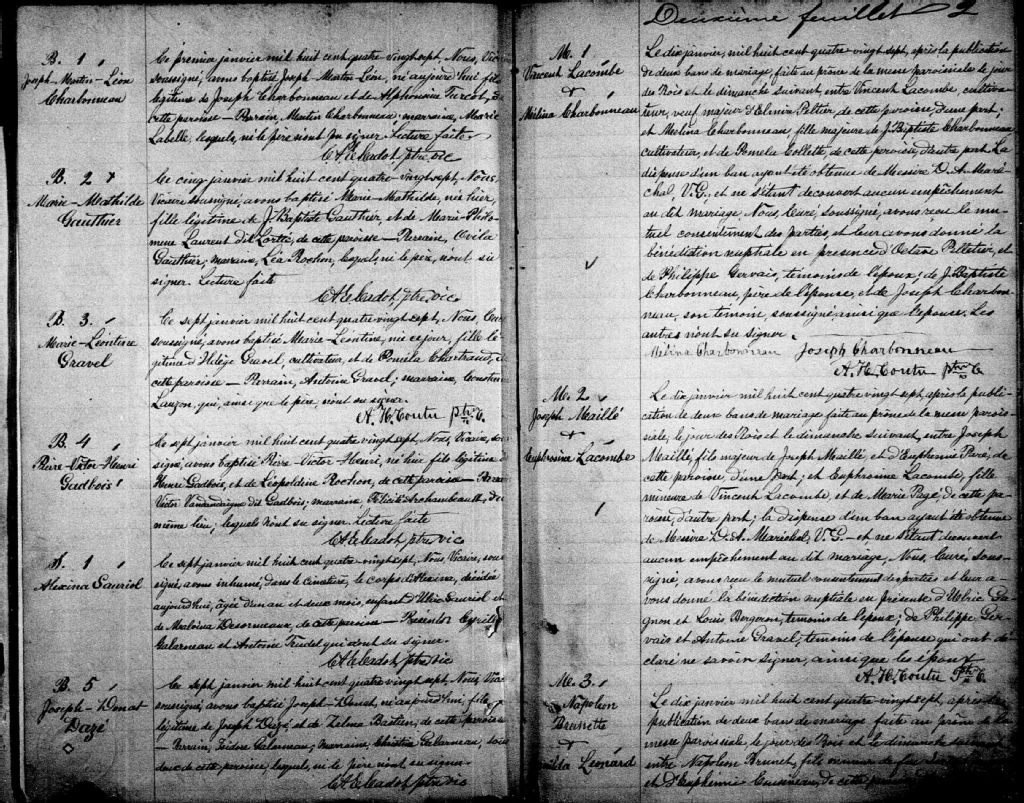 B. 1
Joseph-Martin-Léon
Charbonneau
Ce premier janvier mil huit cent quatre vingt sept, Nous, Vicaire
soussigné, avons baptisé Joseph Martin Léon, né aujourd'hui fils
légitime de Joseph Charbonneau et de Alphonsine Turcot, de
cette paroisse — Parrain, Martin Charbonneau; marraine, Marie
Labelle, lesquels, ni le père n'ont pu signer Lecture faite
ptre vic
B. 2
Marie-Mathilde
Gauthier
Ce cinq janvier mil huit cent quatre-vingt sept, Nous,
Vicaire soussigné, avons baptisé Marie-Mathilde, née hier,
fille légitime de J. Baptiste Gauthier, et de Marie-Philo-
mene Laurent dit Lortie, de cette paroisse — Parrain, Ovila
Gauthier; marraine, Léa Rochon, lesquels, ni le père, n'ont su
signer. Lecture faite
ptre vic
B. 3.
Marie-Léontine
Gravel
Ce sept janvier mil huit cent quatre vingt sept, Nous Curé
soussigné, avons baptisé Marie-Léontine, née ce jour, fille lé-
gitime d'Hilège Gravel, cultivateur, et de Pamela Chartrand, de
cette paroisse — Parrain, Antoine Gravel; marraine,
Lauzon, qui, ainsi que le père, n'ont su signer.
A. H. Coutu Ptre C.
B. 4
Pierre-Victor-Henri
Gadbois
Ce sept janvier mil huit cent quatre vingt sept, Nous, Vicaire, sous-
signé, avons baptisé Pierre Victor Henri, né hier fils légitime de
Henri Gadbois, et de Léopoldine Rochon, de cette paroisse — Parrain
Victor Vandandaigne dit Gadbois; marraine, Félicité Archambeault, du
même lieu; lesquels n'ont su signer. Lecture faite
ptre vic
S. 1
Alexina Sauriol
Ce sept janvier mil huit cent quatre-vingt sept, Nous, Vicaire, sous-
signé, avons inhumé, dans le cimetière, le corps d'Alexina, décédée
aujourd'hui, âgée d'un an et deux mois, enfant d'Ulric Sauriol et
de Malvina Desormeaux, de cette paroisse — Présents Cyrille
Galarneau et Antoine Trudel qui n'ont su signer.
ptre vic
B. 5
Joseph-Donat
Dazé
Ce sept janvier mil huit cent quatre vingt sept, Nous, Vicaire
soussigné, avons baptisé Joseph-Donat, né aujourd'hui, fils
légitime de Joseph Dazé et de Zelma Bastien, de cette paroisse
— Parrain, Isidore Galarneau; marraine, Christine Galarneau, tous
deux de cette paroisse, lesquels, ni le père n'ont su signer
ptre vic
Deuxième feuillet 2
M. 1
Vincent Lacombe
&
Mélina Charbonneau
Le dix janvier, mil huit cent quatre vingt sept, après la publication
de deux bans de mariage, faite au prône de la messe paroissiale le jour
des Rois et le dimanche suivant, entre Vincent Lacombe, cultiva-
teur, veuf majeur d'Elmire Peltier, de cette paroisse, d'une part;
et Melina Charbonneau, fille majeure de J. Baptiste Charbonneau
cultivateur, et de Pomela Collette, de cette paroisse, d'autre part La
dispense d'un ban ayant été obtenue de Messire D. A. Maré-
chal, V. G.; et ne s'étant decouvert aucun empêchement
au dit mariage, Nous, Curé, soussigné, avons recu le mu-
tuel consentement des parties et leur avons donné la
bénédiction nuptiale en presence d'Octave Pelletier, et
de Philippe Gervais, temoins de l'époux; de J. Baptiste
Charbonneau, père de l'épouse, et de Joseph Charbon-
neau, son temoin, soussigné ainsi que l'épouse. Les
autres n'ont su signer.
Mélina Charbonneau Joseph Charbonneau
A. H. Coutu Ptre C.
M. 2
Joseph Maillé
&
Euphrosine Lacombe
Le dix janvier mil huit cent quatre vingt sept, après la publi-
cation de deux bans de mariage fait au prône de la messe parois-
siale, le jour des Rois et le dimanche suivant, entre Joseph
Maillé, fils majeur de Joseph Maillé et d'Euphemie Paré, de
cette paroisse, d'une part; et Euphrosine Lacombe, fille
mineure de Vincent Lacombe, et de Marie Pagé, de cette pa-
roisse, d'autre part; la dispense d'un ban ayant été obtenue
de Messire D. A. Maréchal, V. G. — et ne s'étant decouvert
aucun empêchement au dit mariage, Nous, Curé, sous-
signé, avons recu le mutuel consentement des parties et leur a-
vons donné la bénédiction nuptiale en présence d'Ulric Ga-
gnon et Louis Bergeron, temoins de l'époux; de Philippe Ger-
vais et Antoine Gravel; temoins de l'épouse qui ont dé-
claré ne savoir signer, ainsi que les époux
A. H. Coutu Ptre C.
M. 3
Napoléon
Brunette
&
Léonard
Le dix janvier mil huit cent quatre vingt sept, après la
publication de deux bans de mariage faite au prône de la
messe paroissiale le jour des Rois et le dimanche suivant
entre Napoléon Brunet, fils mineur de feu
et d'Euphémie Cousineau, de cette